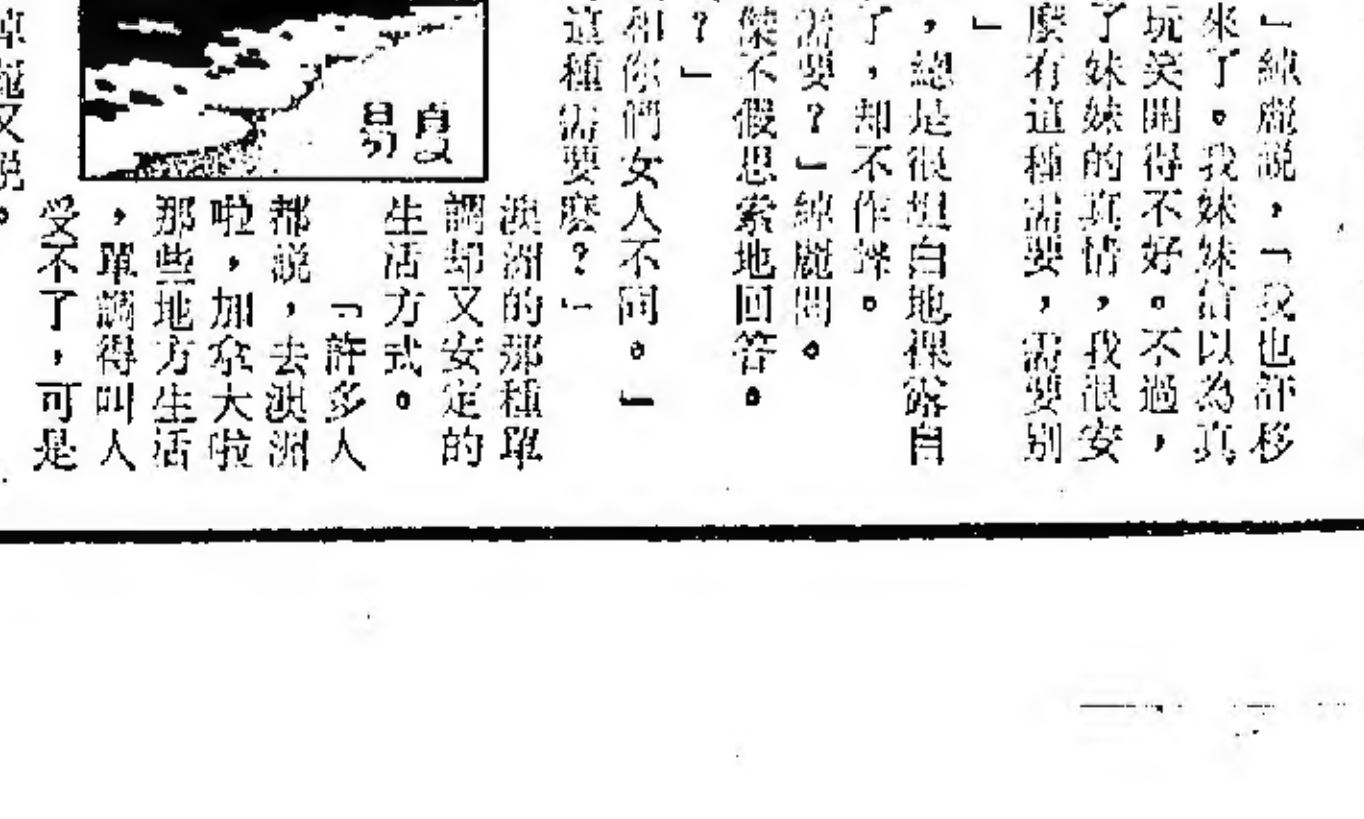 」綽麗説，「我也許移
來了。我妹妹信以為真
玩笑開得不好。不過，
了妹妹的真情，我很安
麼有這種需要，需要别
」
，總是很坦白地裸露自
了，却不作聲。
需要？」綽麗問。
傑不假思索地回答。
？」
和你們女人不同。」
這種需要麽？」
澳洲的那種單
調却又安定的
生活方式。
「許多人
都説，去澳洲
啦，加拿大啦
那些地方生活
，單調得叫人
受不了，可是
綽麗又説。
夏
易